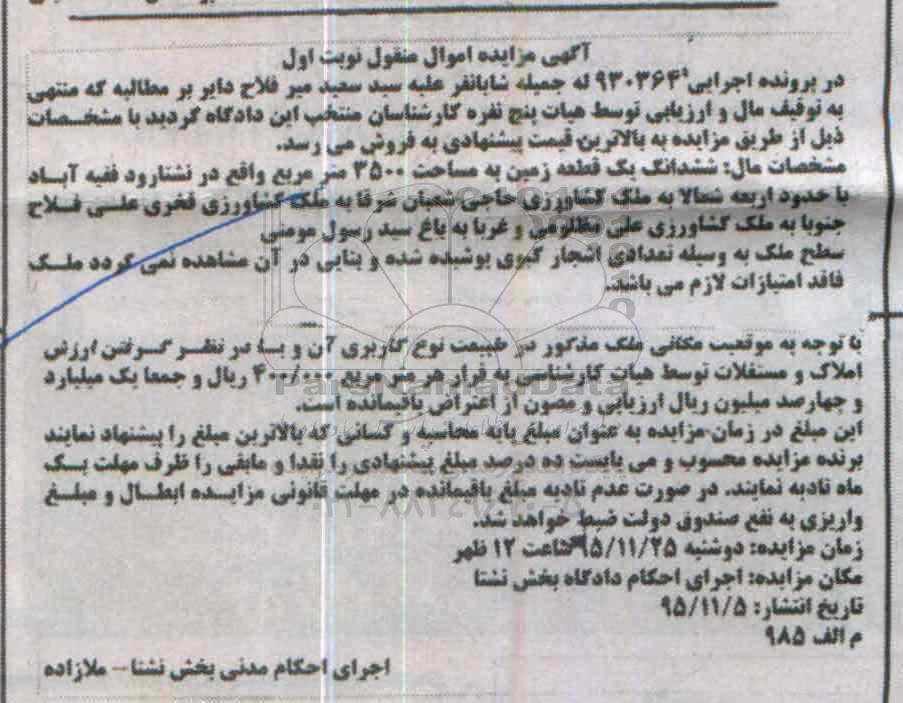 آگهی مزایده اموال منقول نوبت اول
در پرونده اجرایی ۹۳۰۳۶۴ له جمیله شاباتفر علیه سید سعید میر فلاح دایر بر مطالبه که منتهی
به توقیف مال و ارزیابی توسط هیات پنج نفره کارشناسان منتخب این دادگاه گردید با مشخصات
ذیل از طریق مزایده به بالاترین قیمت پیشنهادی به فروش می رسد.
مشخصات مال: ششدانگ یک قطعه زمین به مساحت ۳۵۰۰ متر مربع واقع در نشتارود فقیه آباد
با حدود اربعه شمالا به ملک کشاورزی حاجی شعبان شرقا به ملک کشاورزی فخری علی فلاح
جنوبا به ملک کشاورزی علی مظلومی و غربا به باغ سید رسول مومنی
سطح ملک به وسیله تعدادی اشجار کیوی پوشیده شده و بنایی در آن مشاهده نمی گردد ملک
فاقد امتیازات لازم می باشد.
با توجه به موقعیت مکانی ملک مذکور در طبیعت نوع کاربری آن و با در نظر گرفتن ارزش
املاک و مستغلات توسط هیات کارشناسی به قرار هر متر مربع ۴۰۰/۰۰۰ ریال و جمعا یک میلیارد
و چهارصد میلیون ریال ارزیابی و مصون از اعتراض باقیمانده است.
این مبلغ در زمان مزایده به عنوان مبلغ پایه محاسبه و کسانی که بالاترین مبلغ را پیشنهاد نمایند
برنده مزایده محسوب و می بایست ده درصد مبلغ پیشنهادی را نقدا و مابقی را ظرف مهلت یک
ماه تادیه نمایند. در صورت عدم تادیه مبلغ باقیمانده در مهلت قانونی مزایده ابطال و مبلغ
واریزی به نفع صندوق دولت ضبط خواهد شد.
زمان مزایده: دوشنبه ۹۵/۱۱/۲۵ ساعت ۱۲ ظهر
مکان مزایده: اجرای احکام دادگاه بخش نشتا
تاریخ انتشار: ۹۵/۱۱/۵
م الف ۹۸۵
اجرای احکام مدنی بخش نشتا – ملازاده